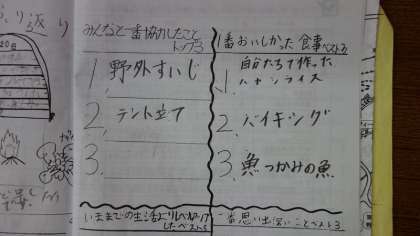 ふり返り
みんなと一番協力したこと
トップ3
1, 野外すいじ
2, テント立て
3.
1番おいしかった食事ベスト3
1. 自分たちで作った
ハヤシライス
2. バイキング
3. 魚つかみの魚
いままでの生活よりレベルアップ
したベスト5
一番思い出深いことベスト3